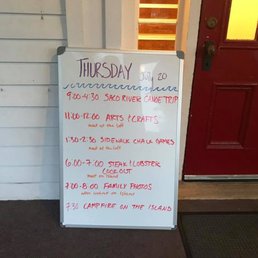 THURSDAY July 20
9:00-4:30 SACO RIVER CANOE TRIP
11:00-12:00 ARTS & CRAFTS
meet at the loft
1:30-2:30 SIDEWALK CHALK GAMES
meet at the loft
6:00-7:00 STEAK & LOBSTER
COOK OUT
meet on island
7:00-8:00 FAMILY PHOTOS
on Island
7:30 CAMPFIRE ON THE ISLAND